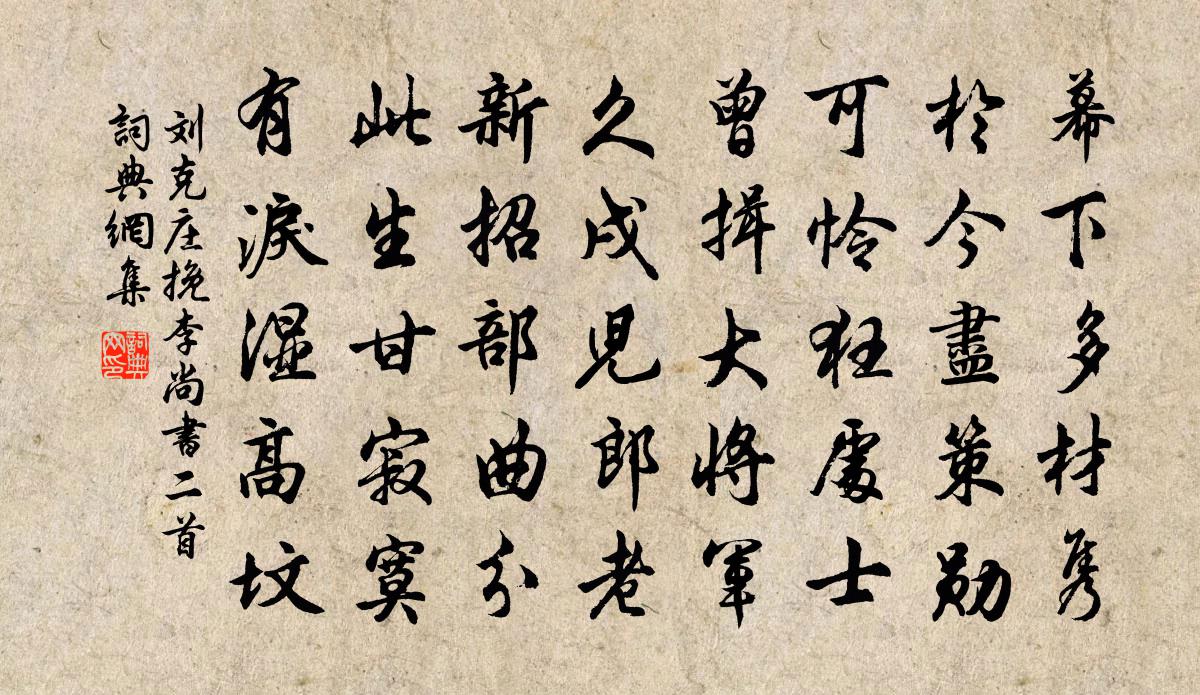 幕下多材雋
於今盡策勋
可怜狂處士
曾揖大將軍
久戍児郎老
新招部曲分
此生甘寂寞
有淚濕高坟
刘克庄挽李尚書二首
詞典網集
詞典网印